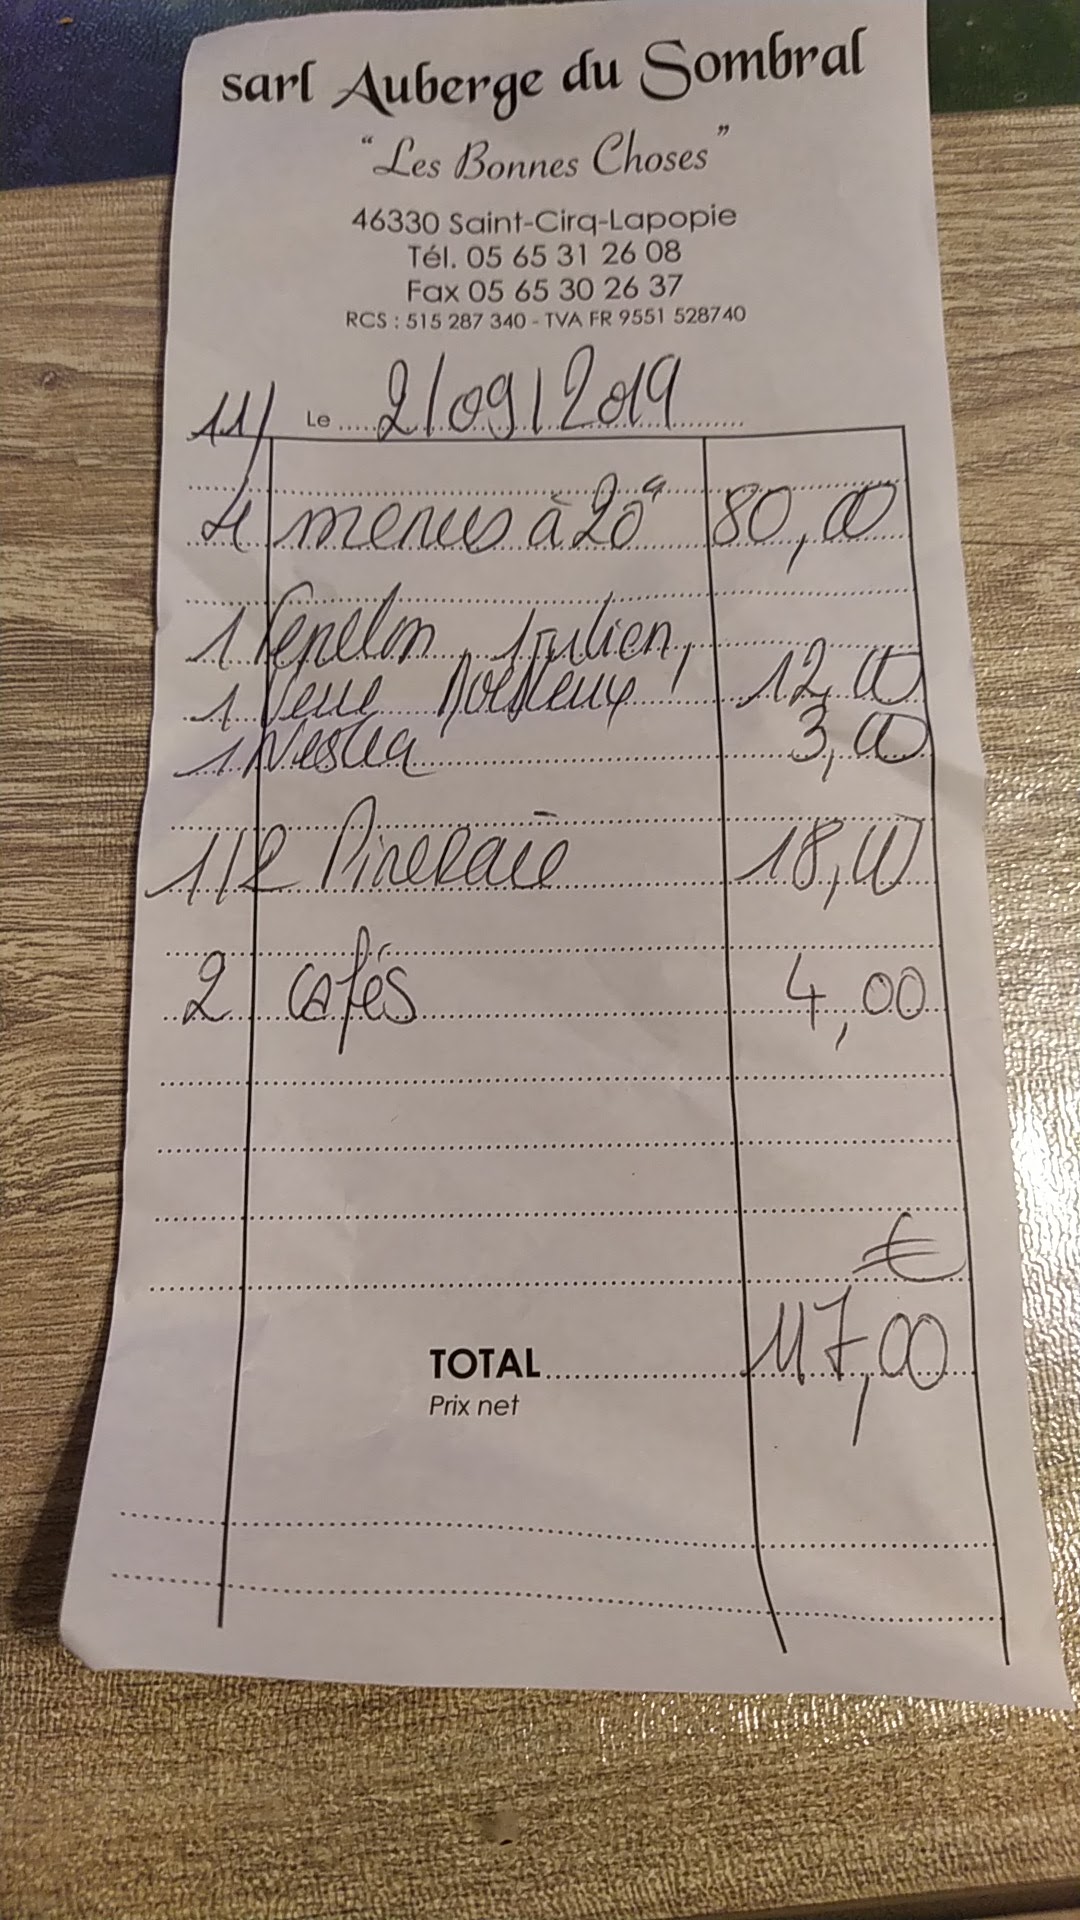 sarl Auberge du Sombral
“Les Bonnes Choses”
46330 Saint-Cirq-Lapopie
Tél. 05 65 31 26 08
Fax 05 65 30 26 37
RCS : 515 287 340 - TVA FR 9551 528740
11/ Le 2/09/2019
4 menus à 20€ 80,00
1 Fenelon, 1 Julien,
1 Verre Moelleux 12,00
1 Vestea 3,00
1/2 Pineraie 18,00
2 cafés 4,00
€
TOTAL 117,00
Prix net